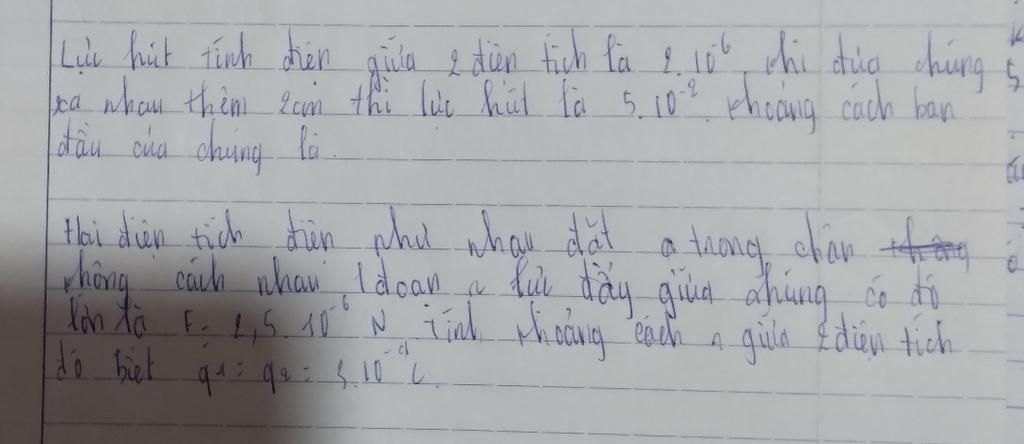 Lực hút tĩnh điện giữa 2 điện tích là 2.10⁻⁶ khi đưa chúng
xa nhau thêm 2cm thì lực hút là 5.10⁻². khoảng cách ban
đầu của chúng là.
Hai điện tích điện như nhau đặt trong chân
không cách nhau 1 đoạn r lực đẩy giữa chúng có độ
lớn là F = 2,5.10⁻⁶ N. Tính khoảng cách r giữa 2 điện tích
đó biết q₁ = q₂ = 3.10⁻⁹ C.